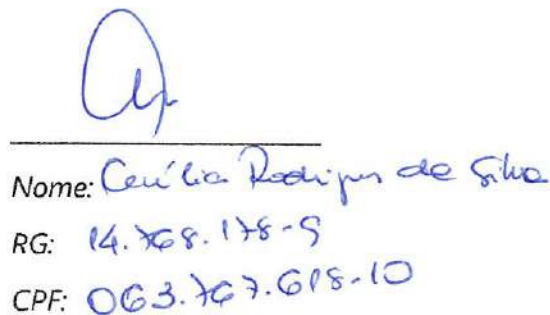 Nome: Cecília Rodrigues da Silva
RG: 14.768.178-9
CPF: 063.767.618-10